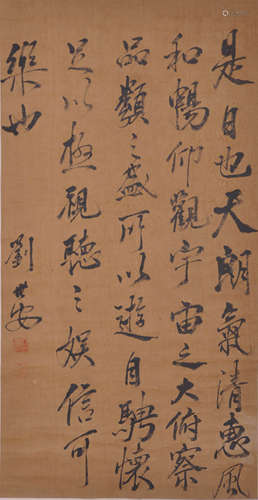 是日也天朗氣清惠風
和暢仰觀宇宙之大俯察
品類之盛所以遊自騁懷
足以極視聽之娛信可
樂也
劉世安